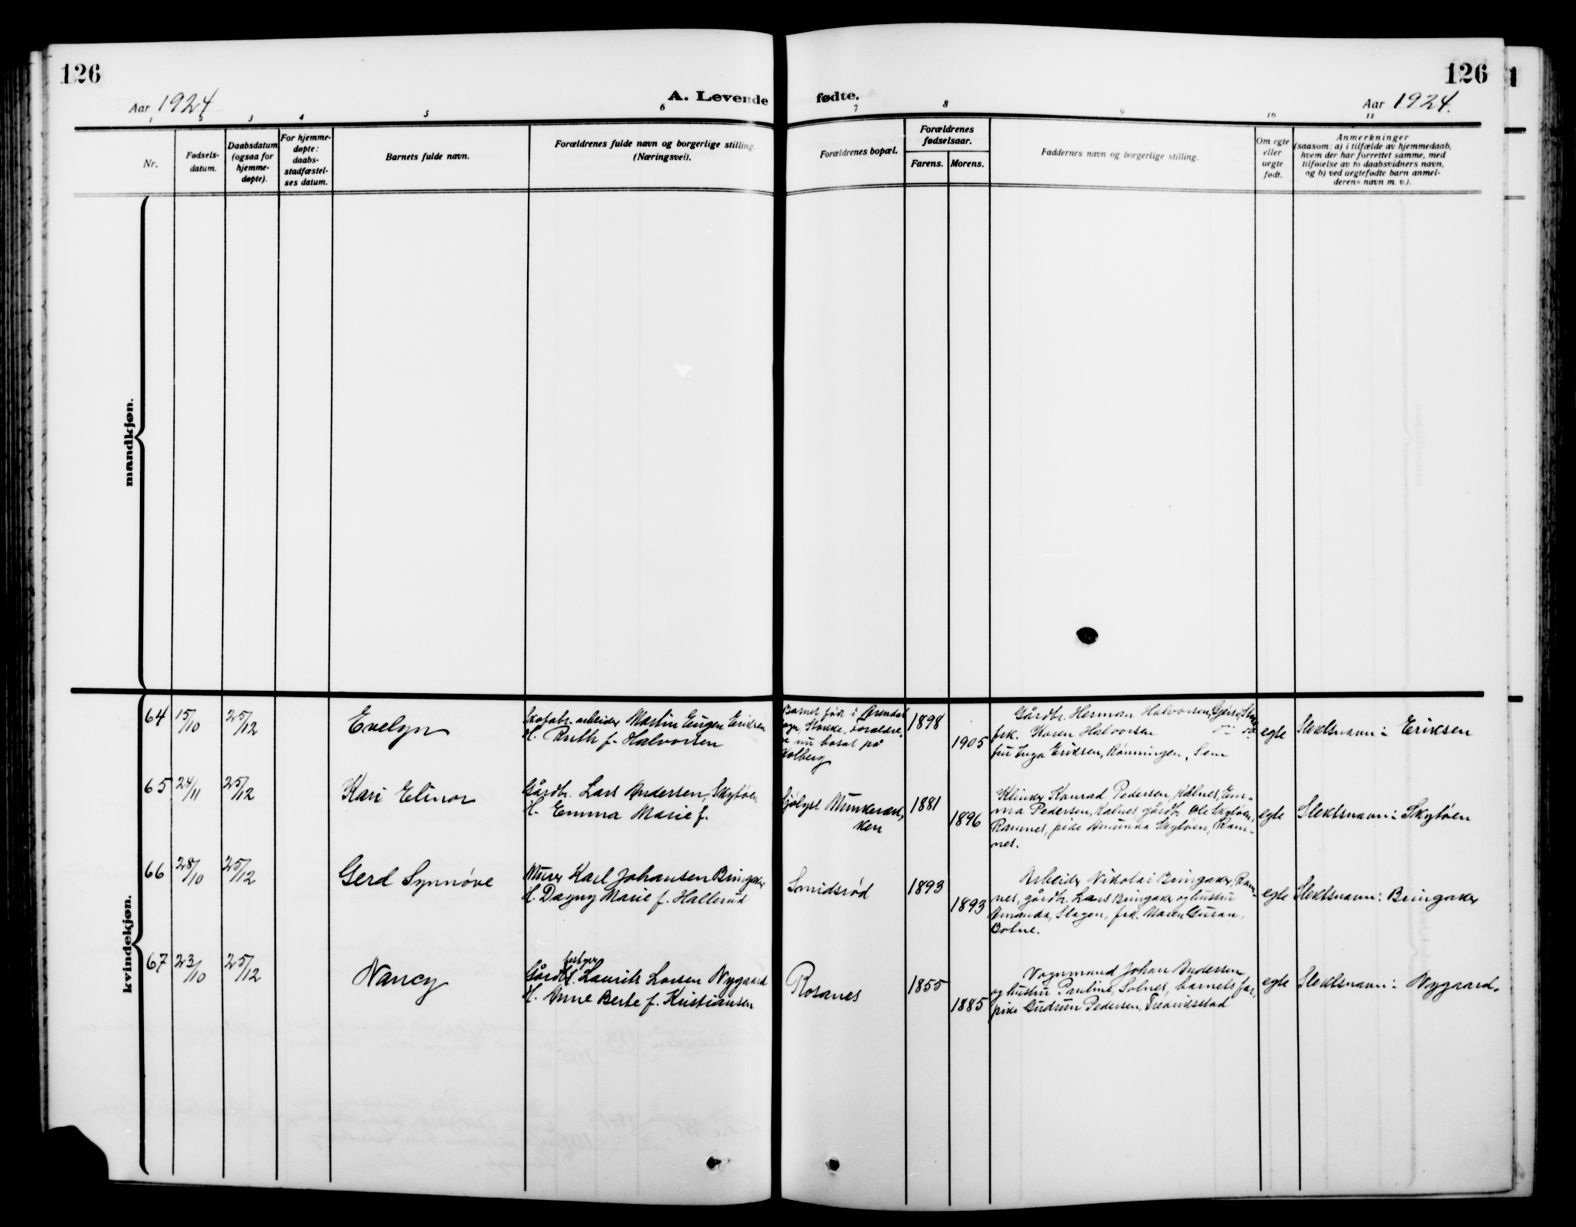 126
126
Aar 1924
A. Levende fødte.
Aar 1924.
1 2 3 4 5 6 7 8 9 10 11
Nr.
Fødsels-
datum.
Daabsdatum
(ogsaa for
hjemme-
døpte).
For hjemme-
døpte:
daabs-
stadfæstel-
ses datum.
Barnets fulde navn.
Forældrenes fulde navn og borgerlige stilling
(Næringsvei).
Forældrenes bopæl.
Forældrenes
fødselsaar.
Farens. Morens.
Faddernes navn og borgerlige stilling.
Om egte
eller
uegte
født.
Anmerkninger
(saasom: a) i tilfælde av hjemmedaab,
hvem der har forrettet samme, med
tilføielse av to daabsvidners navn,
og b) ved uegtefødte barn anmel-
derens navn m. v.).
mandkjøn.
kvindekjøn.
64 15/10 25/12
Evelyn
arbeider Martin Eugen Eriksen
H. Ruth f. Halvorsen
Barnet født i
Stokke,
nu bosat på
Solberg
1898
1905
Gårdbr. Herman Halvorsen,
frk. Karen Halvorsen
fru Inga Eriksen, Rønningen, Sem
egte
Slektsnavn: Eriksen
65 24/11 25/12
Kari Elinor
Gårdbr. Lars Andersen, Skytøen
H. Emma Marie f.
1881
1896
Klinker Konrad Pedersen, Kalnes, Em-
ma Pedersen, Kalnes, gårdbr. Ole Skytøen,
Ramnes, pike Amunda Skytøen, Ram-
nes.
egte
Slektsnavn: Skytøen
66 28/10 25/12
Gerd Synnøve
Murer Karl Johansen Bringaker
H. Dagny Marie f. Hallerud
Smidsrød
1893
1893
Arbeider Nikolai Bringaker, Ram-
nes, gårdbr. Lars Bringaker og hustru
Amanda, Slagen, frk. Maren
Botne.
egte
Slektsnavn: Bringaker
67 23/10 25/12
Nancy
bestyrer
Gårdbr. Laurits Larsen Nygaard
H. Anne Berte f. Kristiansen
Rosanes
1855
1885
Vognmand Johan Andersen
og hustru Pauline, Solnes, barnets far,
pike Gudrun Pedersen, Fredrikstad
egte
Slektsnavn: Nygaard.